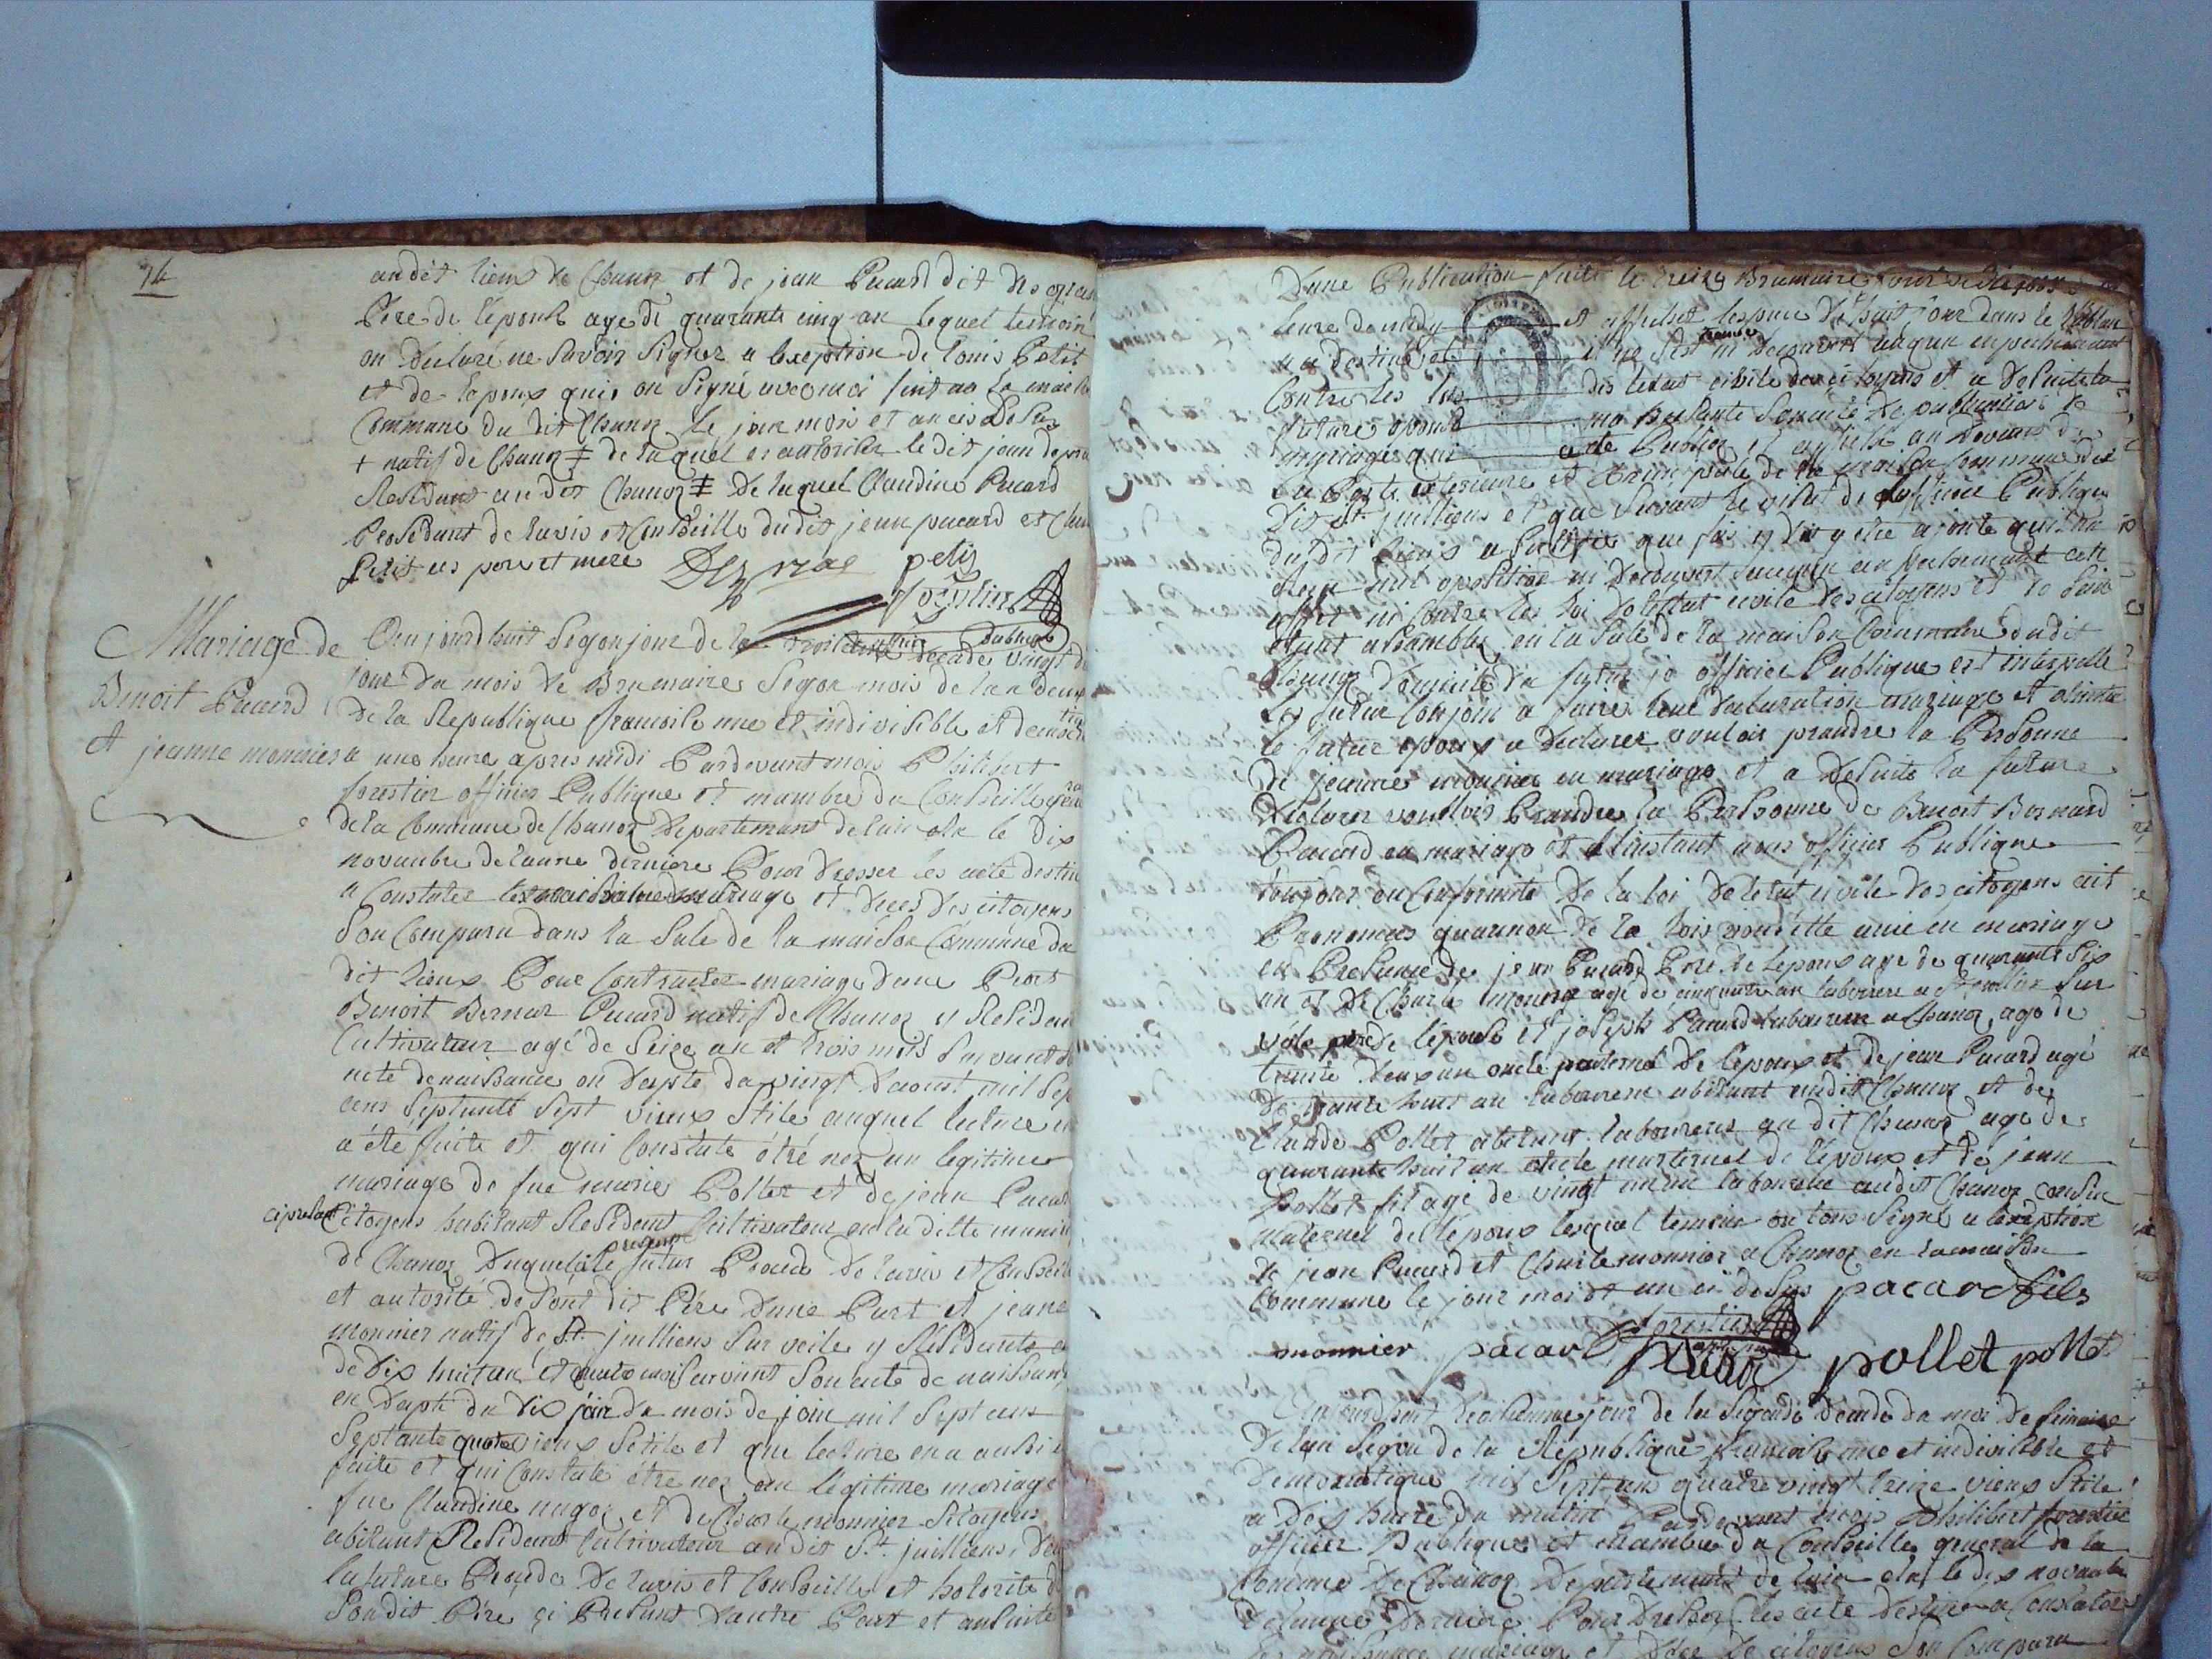 14
audit lieux de Chanoz et de jean Pacard dit
Pere de l'epouse agé de quarante cinq an lequel temoin
on declaré ne savoir signer a lexeption de louis Petit
et de lepoux qui on Signé avec moi fait a la maison
Commune du dit Chanoz le jour mois et an ci desus
+ natif de Chanoz ‡ de laquel et autoriter le dit jean
Residant au dit Chanoz ‡ De laquel Claudine Pacard
Procedant de lavis et Conseille dudit jean pacard et
Petit ces pere et mere
petit
forestier
Mariage de
Benoit Pacard
et jeanne monnier
Aujourdhuit Segon jour de la troisieme decade vingt d
jour du mois de Brumaire Segon mois de lan deux
de la Republique francoise une et indivisible et democra
a une heure apres midi Pardevant moi Philibert
forestier officier Publique et mambre du Conseille general
de la Commune de Chanoz Departemant de lain elu le dix
novambre de lanne derniere Pour dresser les acte destine
a Constater les naissance mariage et deces des citoyens
Son Comparu dans la Sale de la maison Commune du
dit lieux Pour Contracter mariage dune Part
Benoit Bernar Pacard natif de Chanoz y Residan
Cultivateur agé de Seize an et trois mois suivant s
acte de naissance en dapte du vingt daoust mil sep
cens septante sept vieux Stile auquel lecture
a été faite et qui Constate étré nez en legitime
mariage de fue marie Pollet et de jean Pacard
ci presant Citoyens habitant Residant Cultivateur en la ditte municip
de Chanoz Duquel le futur Procede de lavis et Conseil
et autorité de Sont dit Père Dune Part et jeane
monnier natif de St. juilliens Sur veile y Residante
de dix huit an et quatre mois suivant Son acte de naissance
en dapte du dix jour du mois de join mil Sept cens
Septante quatre vieux Setile et que lecture en a aussi
faite et qui Constate étre nez en légitime mariage
fue Claudine et de Charle monnier Sitoyens
abitant Residant Cultivateur au dit St. juilliens, De
la future Procede De lavis et Conseille et hotorité d
Son dit Père çi Presant dautre Part et ensuite
Dune Publication faite le treize Brumaire jour de
heure de midy et affichet lespace de huit jour dans le tablau
a ce destiné et il ne sest trouvé ni decouvert auqun enpechemant
Contre les lois des letat civile des citoyens et a desuite la
future epouse ma presanté Senaite de publication de
mariage qui a été Publier et affiché au devant de
la Porte exterieure et principale de la maison commune du
dit St. juilliens et que suivant le certificat de lofficier Publique
du dit lieux
nul oposition ni decouvert auqun enpechemant cete
affet ni Contre les loi de lettat civile des citoyens et
etant assamblé en la Sale de la maison Commune dudit
Chanoz domicile du futur je officier Publique est interpelle
les futur Conjoin a faire leur declaration mariage et
le futur epoux a declarer vouloir prandre la Personne
de jeanne monnier en mariage et a desuite la future
declarer vouloir Prandre la Personne de Benoit Bernard
Pacard en mariage et a linstant nous officier Publique
toujour en Conformité De la loi de letat civile des citoyens ait
Prononcer quaunon de la loix sont ette unie en mariage
en Presance de jean Pacard Pere de lepoux age de quarante Six
an et de Charle monnier agé de cinquante an laboureur a St. juillien Sur
veile pere de lépouse et joseph Pacard laboureur a Chanoz age de
trante deux an oncle paternel de lepoux et de jean Pacard agé
de trante huit an laboureur abitant audit Chanoz et de
Claude Pollet abitant laboureur au dit Chanoz age de
quarante huit an oncle marternel de lépoux et de jean
Pollet fil agé de vingt laboureur audit Chanoz cousin
maternel de lépoux lesquel temoin on tous signé a lexeption
de jean Pacard et Charle monnier a Chanoz en la maison
Commune le jour mois et an ci desus pacard fils
forestier
monnier pacard pollet pollet
Aujourdhuit troisiemme jour de la Segonde decade du moi de frimaire
de lan Segon de la Republique francoise une et indivisible et
democratique mil Sept cen quatre vingt treize vieux Stile
a dix heure du matin Pardevant mois Philibert forestier
officier Publique et mambre du Conseille general de la
Commune de Chanoz Departemant de lain elu le dix novambre
de lanne derniere Pour dresser les acte destiné a Constater
les naissance mariage et deces de citoyens Son Comparu